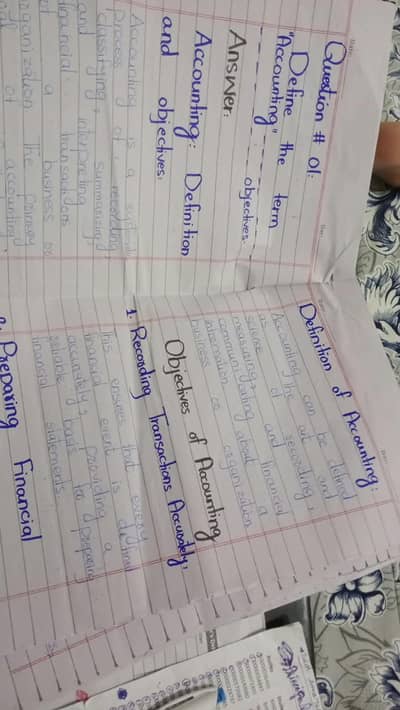 Question # 01:
Define the term
"Accounting"
objectives
Answer:
Accounting: Definition
and objectives:
Accounting is a
process of recording
classifying, summarizing
and interpreting
financial transactions
of a business or
organization The primary
of accounting
Definition of Accounting:
Accounting can be defined
as the art and
science of recording,
measuring, and
communicating financial
information about a
business or organization
Objectives of Accounting
1. Recording Transactions Accurately:
This ensures that every
financial event is
accurately, providing a
reliable basis for preparing
financial statements.
Preparing Financial